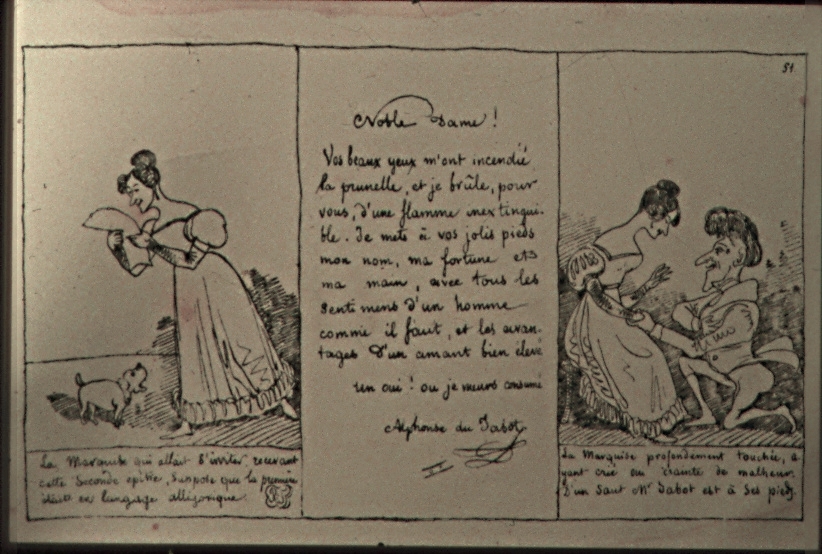 51
Noble Dame !
Vos beaux yeux m'ont incendié
la prunelle, et je brûle, pour
vous, d'une flamme inextingui-
ble. Je mets à vos jolis pieds
mon nom, ma fortune et
ma main, avec tous les
sentimens d'un homme
comme il faut, et les avan-
tages d'un amant bien élevé
un oui ! ou je meurs consumé
Alphonse du Jabot
La Marquise qui allait s'irriter, recevant
cette seconde epitre, suppose que la première
était en langage alligorique.
La Marquise profondement touchée, a
yant crié oui crainte de malheur,
D'un saut Mr Jabot est à ses pieds.